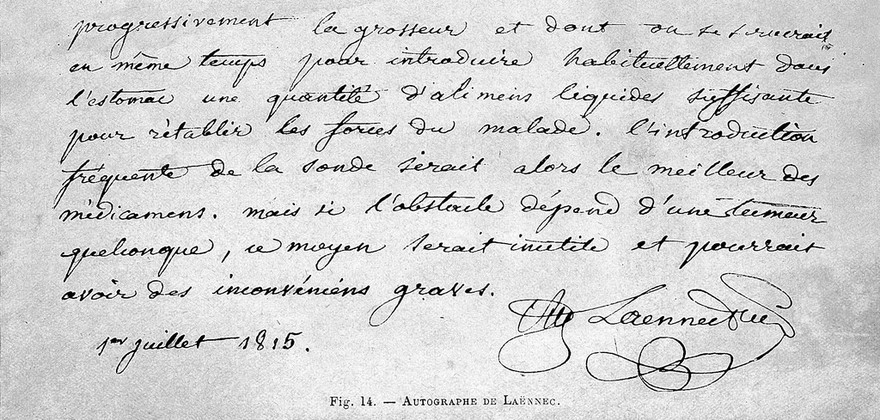 progressivement la grosseur et dont on se servirait
en même temps pour introduire habituellement dans
l'estomac une quantité d'alimens liquides suffisante
pour rétablir les forces du malade. l'introduction
fréquente de la sonde serait alors le meilleur des
médicamens. mais si l'obstacle dépend d'une tumeur
quelconque, ce moyen serait inutile et pourrait
avoir des inconvéniens graves.
Laennec
1er juillet 1815.
Fig. 14. — AUTOGRAPHE DE LAËNNEC.